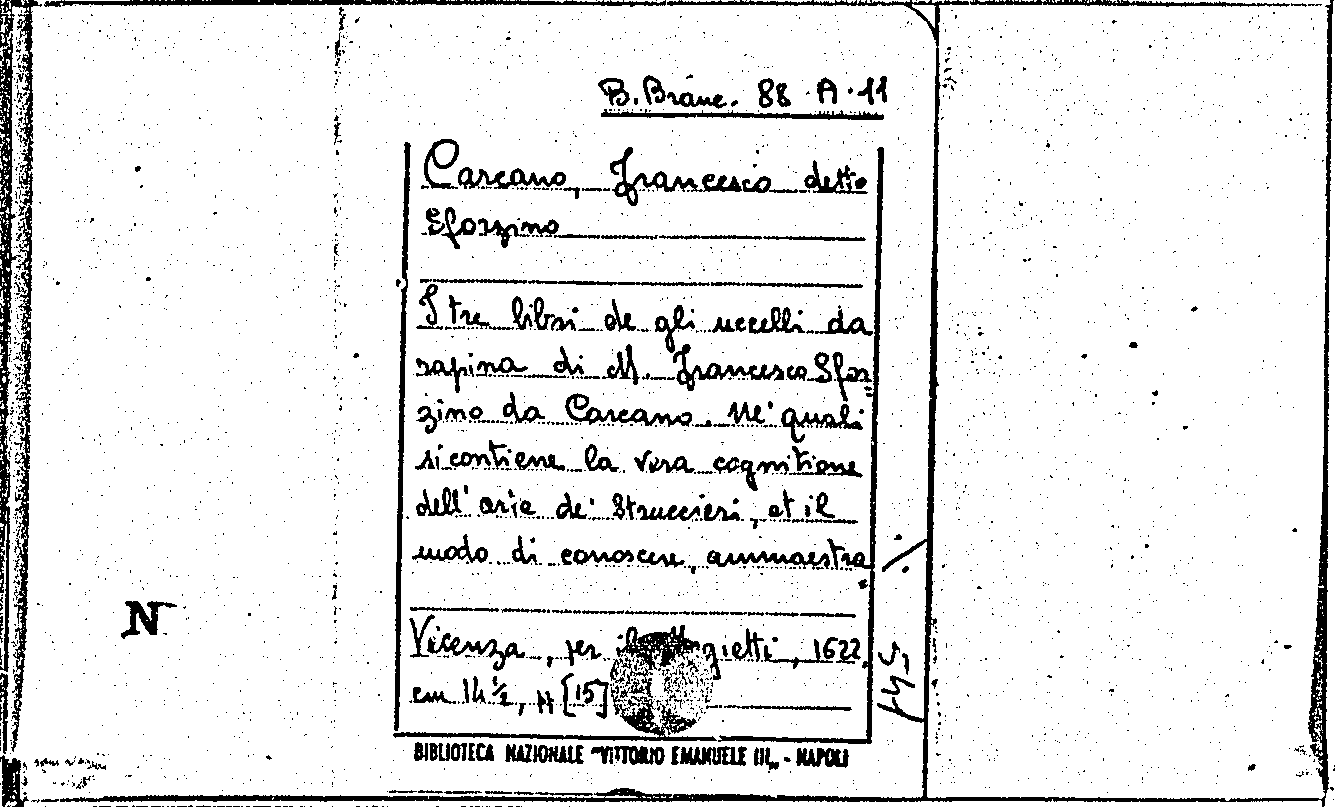 B. Branc. 88 A. 11
Carcano, Francesco detto
Sforzino
I tre libri de gli uccelli da
rapina di M. Francesco Sfor=
zino da Carcano. Ne' quali
si contiene la vera cognitione
dell' arte de' Struccieri, et il
modo di conoscere, ammaestra=
Vicenza, per il gietti, 1622,
cm 14 ½, [15]
BIBLIOTECA NAZIONALE "VITTORIO EMANUELE III" - NAPOLI
N